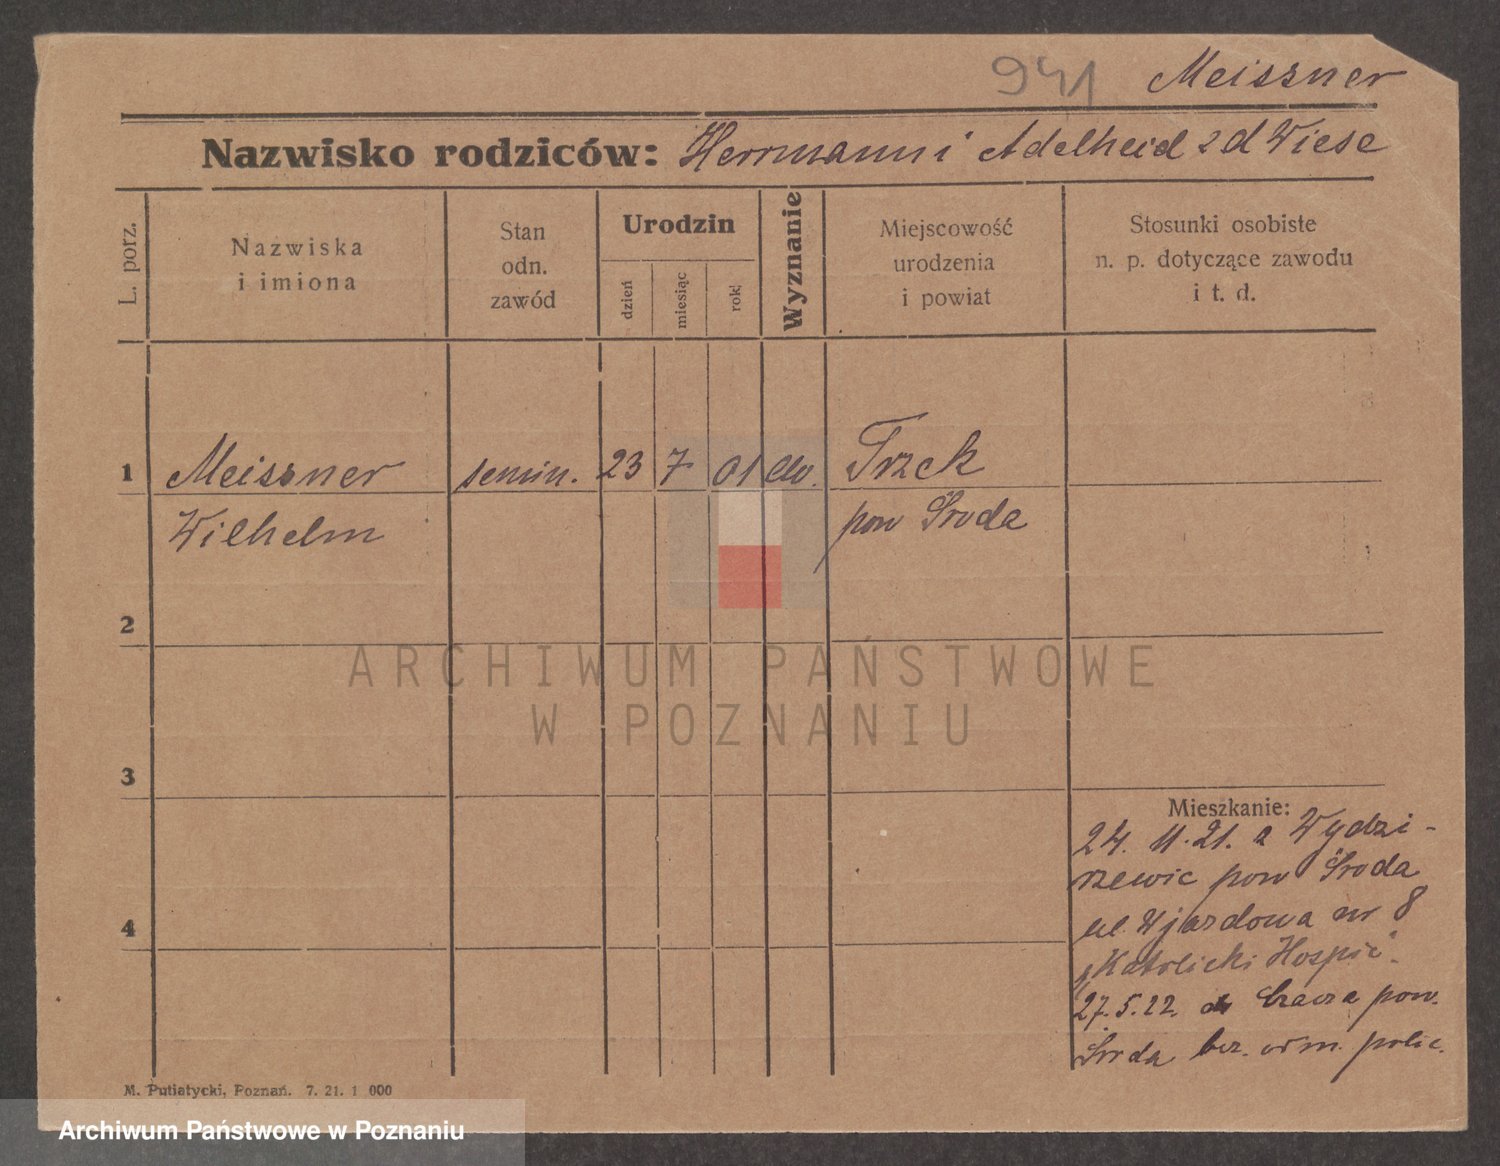 941 Meissner
Nazwisko rodziców: Herrmann i Adelheid z d Wiese
L. porz.
Nazwiska
i imiona
Stan
odn.
zawód
Urodzin
dzień
miesiąc
rok
Wyznanie
Miejscowość
urodzenia
i powiat
Stosunki osobiste
n. p. dotyczące zawodu
i t. d.
1 Meissner semin. 23 7 01 Trzek
Wilhelm pow Środa
2
3
4
ARCHIWUM PAŃSTWOWE
W POZNANIU
Mieszkanie:
24. 11. 21. z Wydzi-
rzewic pow Środa
ul. Wjazdowa nr 8
„Katolicki Hospic".
27. 5. 22. pow.
Środa bez. polic.
M. Putiatycki, Poznań. 7. 21. 1 000
Archiwum Państwowe w Poznaniu